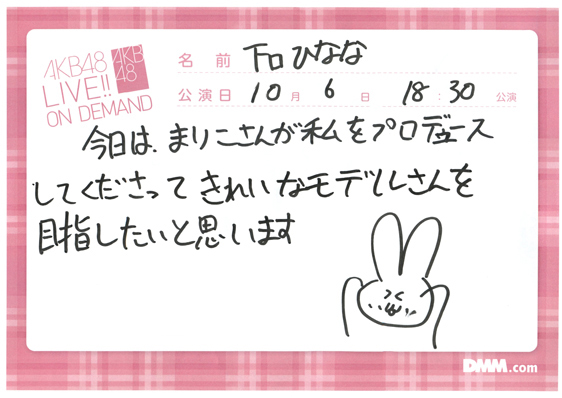 AKB48
LIVE!!
ON DEMAND
AKB
48
名前 下口ひなな
公演日 10月 6日 18:30 公演
今日は、まりこさんが私をプロデュース
してくださって きれいなモデルさんを
目指したいと思います
DMM.com